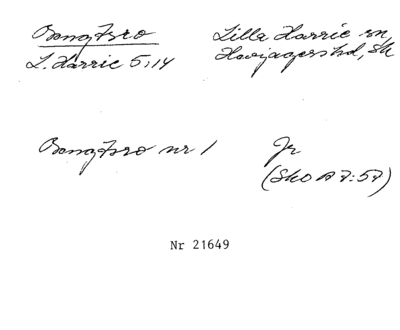 Bengtsro
Lilla Harrie sn,
L. Harrie 5:14
Harjagers hd, Sk
Bengtsro nr 1
Jr
(SkO A 7:57)
Nr 21649